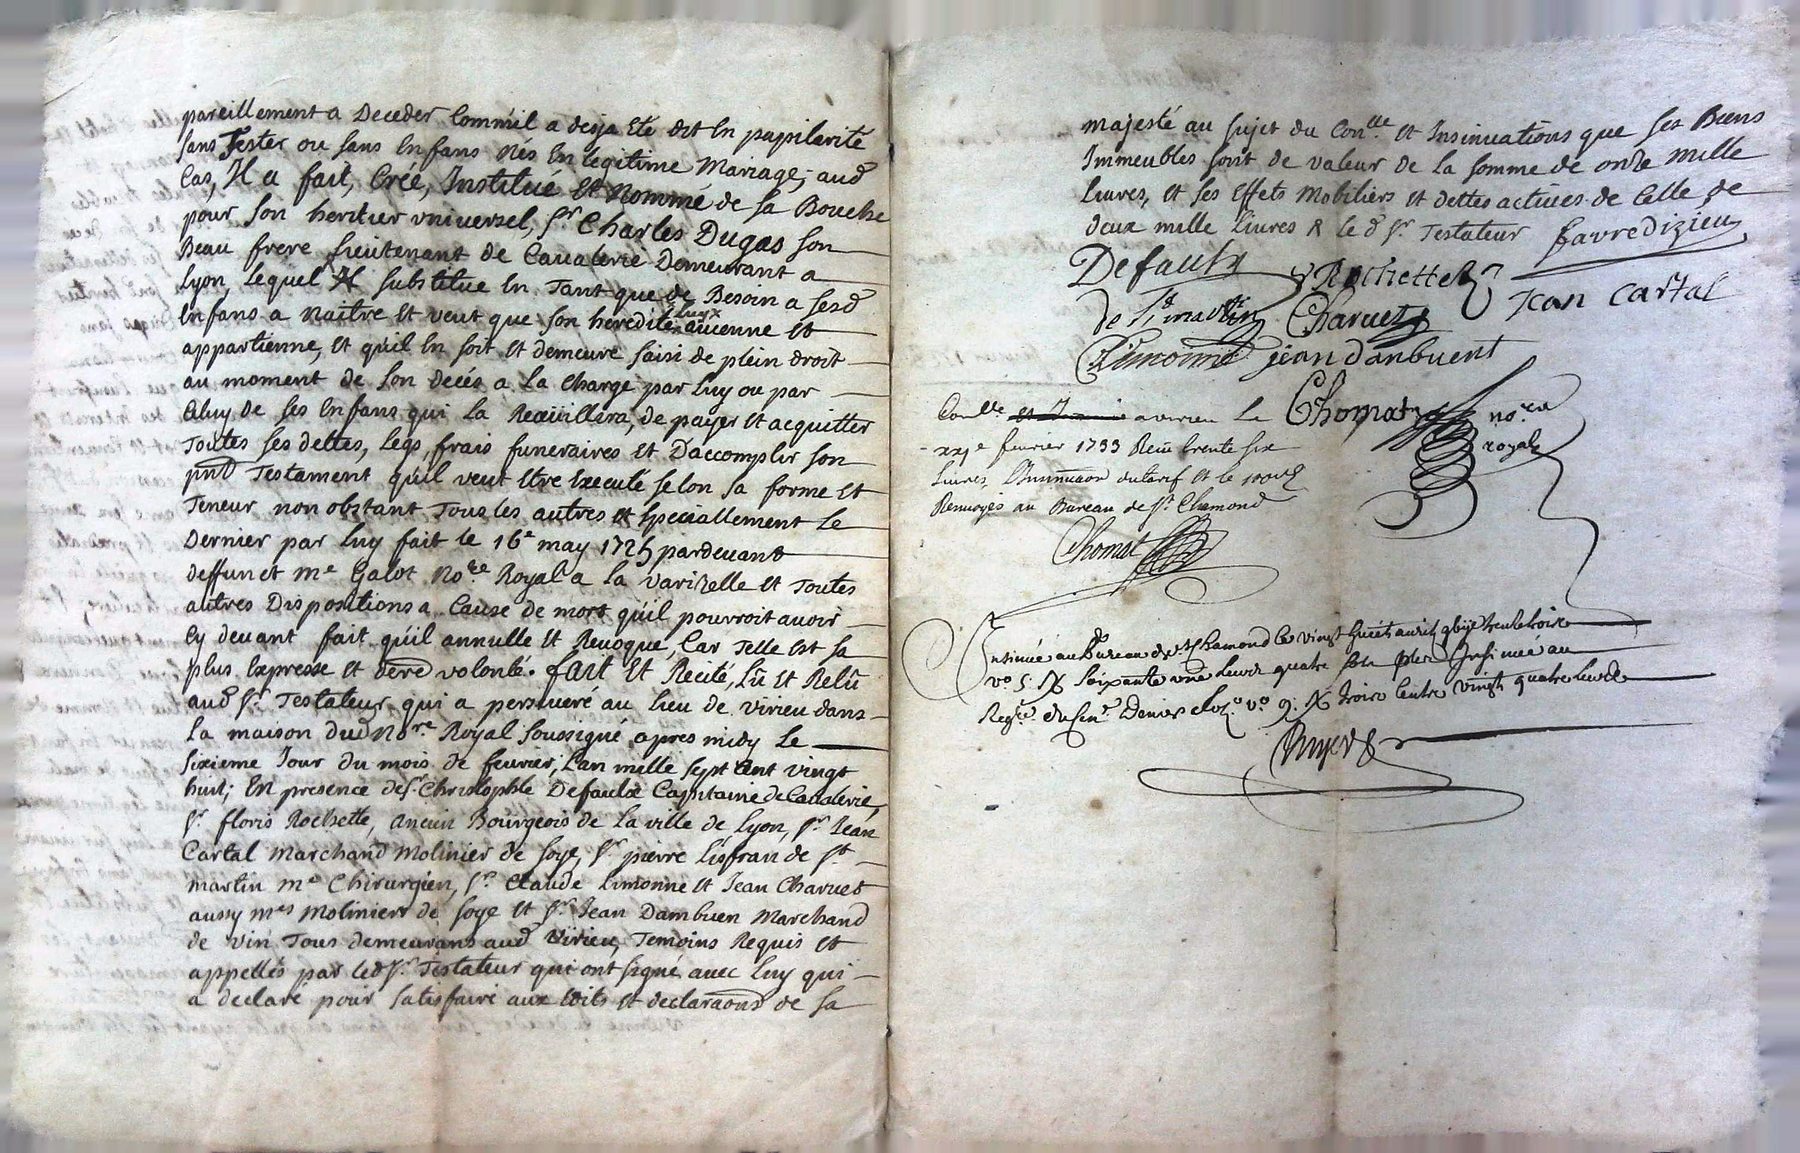 pareillement a Deceder Comm'il a desja Eté dit En pupilarité
sans Tester ou sans Enfans Nés En legitime Mariage; aud
Cas, Il a fait, Créé, Institué Et Nommé de sa Bouche
pour son heritier vniversel, Sr Charles Dugas son
Beau frere Lieutenant de Cavalerie Demeurant a
Lyon, Lequel Il substitue En Tant que de Besoin a sesd
Enfans a Naître Et veut que son heredité Luy avienne Et
appartienne, Et qu'il En soit Et demeure saisi de plein droit
au moment de son decés a La Charge par Luy ou par
Celuy de ses Enfans qui La Recüillira, de payer Et acquitter
Toutes ses dettes, Legs, frais funeraires Et D'accomplir son
pnt Testament qu'il veut Etre Executé selon sa forme Et
Teneur non obstant Tous les autres Et Speciallement Le
Dernier par Luy fait le 16e may 1725 pardevant
deffunct Me Galot Nore Royal a la varizelle Et Toutes
autres Dispositions a Cause de mort qu'il pourroit avoir
Cy devant fait qu'il annulle Et Revoque, Car Telle Est sa
plus Expresse Et dere volonté. fait Et Recité, Lû Et Relû
aud Sr Testateur qui a perseveré au Lieu de virieu dans
La maison dud Nore Royal soussigné apres midy Le
sixieme Jour du mois de fevrier, L'an mille sept Cent vingt
huit; En presence de Sr Christophle Defaulx Capitaine de Cavalerie,
Sr floris Rochette, ancien Bourgeois de La ville de Lyon, Sr Jean
Cartal Marchand Molinier de soye, Sr pierre Lisfran de St
martin Me Chirurgien, Sr Claude Limonne Et Jean Charvet
aussy Mes Moliniers de soye Et Sr Jean Dambuen Marchand
de vin Tous demeurans aud Virieu, Temoins Requis Et
appellés par led Sr Testateur qui ont signé avec Luy qui
a declaré pour satisfaire aux Edits Et declaraons de sa
majesté au sujet du Conlle Et Insinuations que ses Biens
Immeubles sont de valeur de La somme de onze mille
Livres, Et ses Effets Mobiliers Et dettes actives de Celle de
deux mille Livres & Le d Sr Testateur favredizieu
Defaulx Rochette Jean Cartal
de St martin Charvet
C Limonne jean danbuent
Chomat nore
royal
Conlle a virieu Le
xxje fevrier 1733 Reçu trente six
Livres,
Renvoyés au Bureau de St Chamond
Chomat
Insinué au Bureau de St Chamond Le vingt huit avril trente trois
vo 5: R soixante une Livre quatre sols Insinué au
Regre du Cene Denier vo 9: R trois Cents vingt quatre Livres